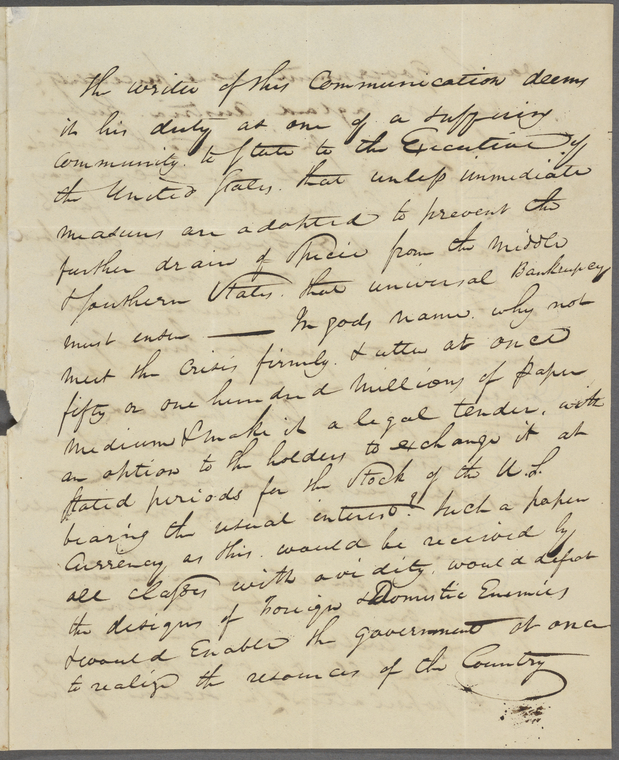 The writer of this Communication deems
it his duty as one of a suffering
community to State to the Executive of
the United States. that unless immediate
measures are adopted to prevent the
further drain of Specie from the middle
& Southern States. that universal Bankrupcy
must ensue — In gods name. why not
meet the crisis firmly. & utter at once
fifty or one hundred Millions of Paper
Medium & make it a legal tender, with
an option to the holders to exchange it at
Stated periods for the Stock of the U.S.
bearing the usual interest? Such a paper
Currency as this. would be received by
all classes with avidity. would defeat
the designs of Foreign & Domestic Enemies
& would Enable the government at once
to realize the resources of the Country